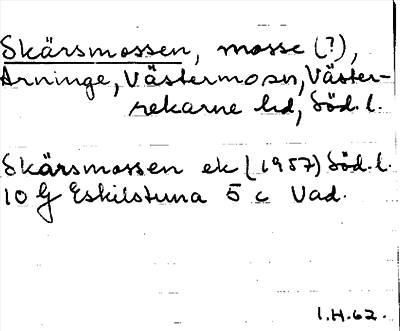 Skärsmossen, mosse (?),
Arninge, Västermo sn, Väster-
rekarne hd, Söd. l.
Skärsmossen ek (1957) Söd. l.
10 G Eskilstuna 5 c Vad.
I.H.62.